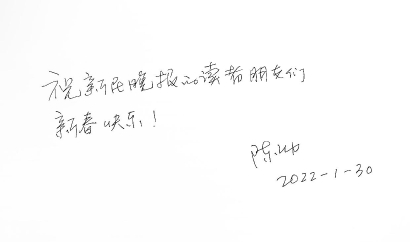 祝新民晚报的读者朋友们
新春快乐！
陈冲
2022-1-30